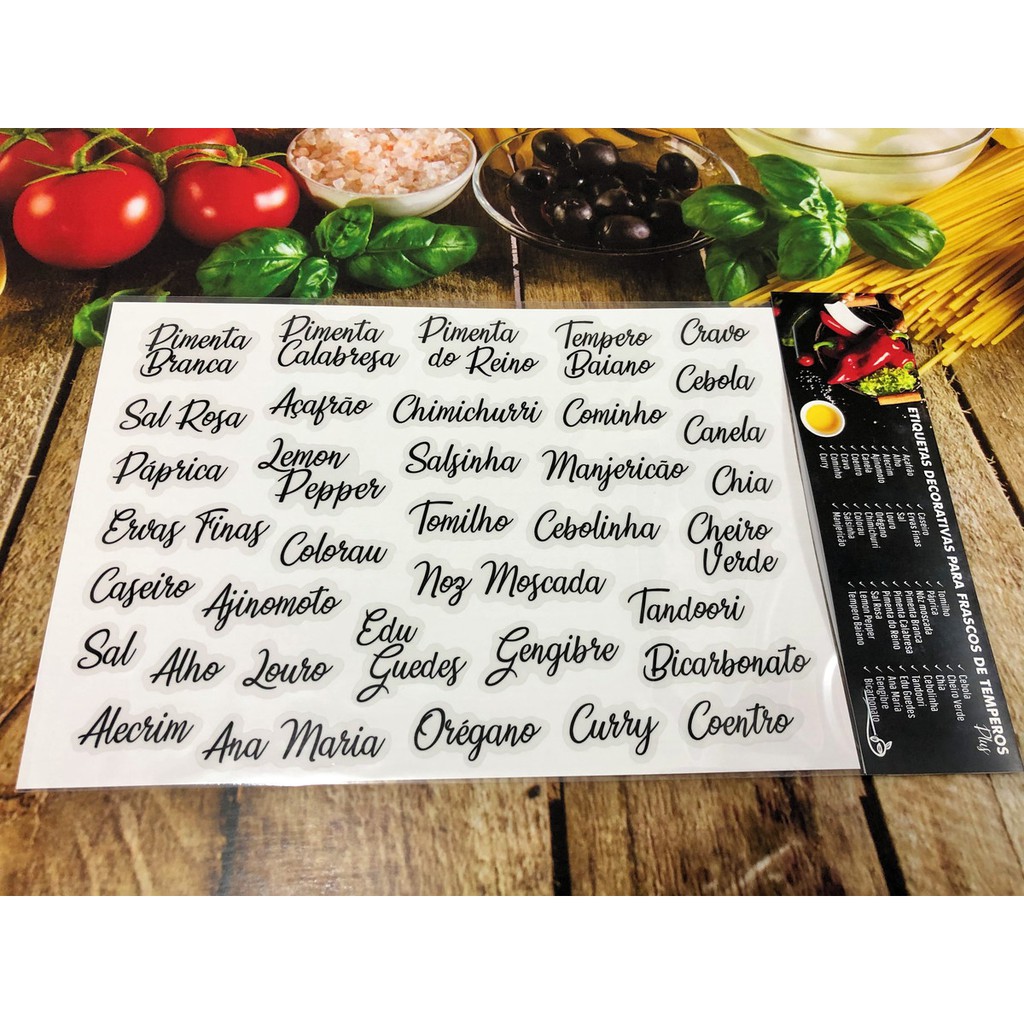 Pimenta
Branca
Pimenta
Calabresa
Pimenta
do Reino
Tempero
Baiano
Cravo
Cebola
Sal Rosa
Açafrão
Chimichurri
Cominho
Canela
Páprica
Lemon
Pepper
Salsinha
Manjericão
Chia
Ervas Finas
Colorau
Tomilho
Cebolinha
Cheiro
Verde
Caseiro
Ajinomoto
Noz Moscada
Tandoori
Sal
Alho
Louro
Edu
Guedes
Gengibre
Bicarbonato
Alecrim
Ana Maria
Orégano
Curry
Coentro
ETIQUETAS DECORATIVAS PARA FRASCOS DE TEMPEROS
Plus
✓ Açafrão
✓ Alho
✓ Alecrim
✓ Ajinomoto
✓ Canela
✓ Coentro
✓ Cravo
✓ Cominho
✓ Curry
✓ Caseiro
✓ Ervas Finas
✓ Sal
✓ Louro
✓ Orégano
✓ Chimichurri
✓ Colorau
✓ Salsinha
✓ Manjericão
✓ Tomilho
✓ Páprica
✓ Nóz moscada
✓ Pimenta Branca
✓ Pimenta Calabresa
✓ Pimenta do Reino
✓ Sal Rosa
✓ Lemon Pepper
✓ Tempero Baiano
✓ Cebola
✓ Cheiro Verde
✓ Chia
✓ Cebolinha
✓ Tandoori
✓ Edu Guedes
✓ Ana Maria
✓ Gengibre
✓ Bicarbonato